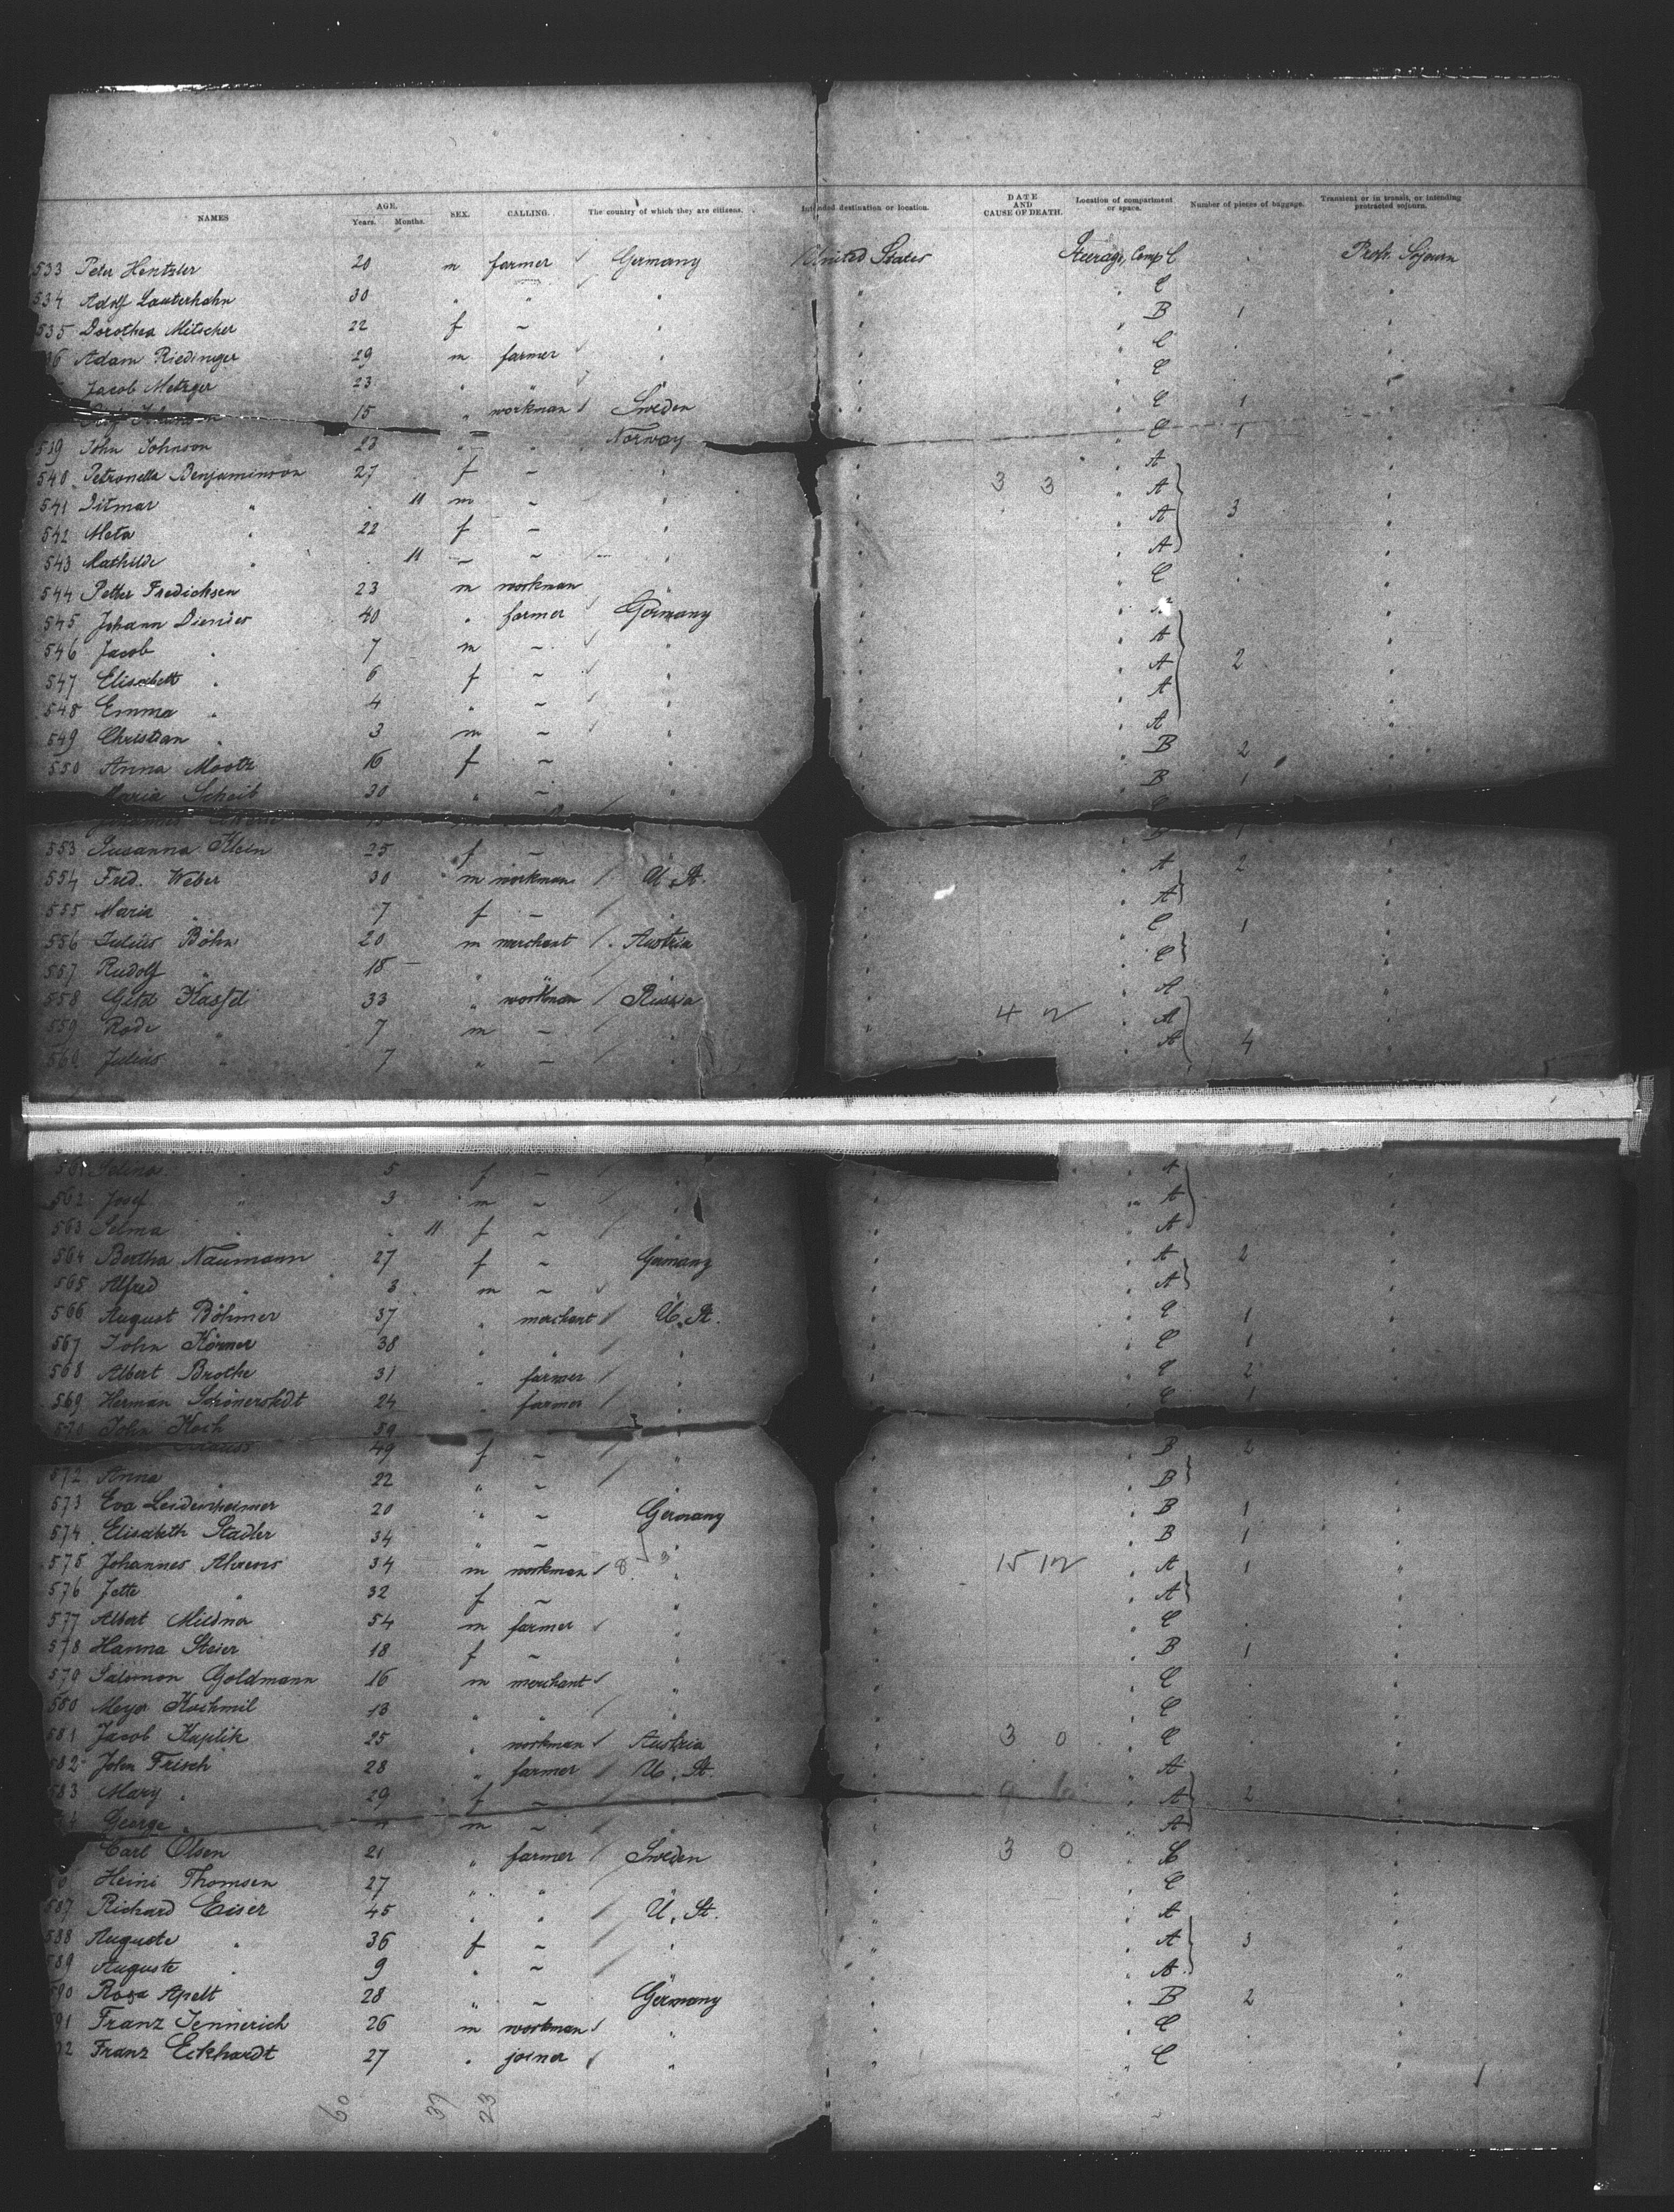 NAMES AGE. Years. Months. SEX. CALLING. The country of which they are citizens. Intended destination or location. DATE AND CAUSE OF DEATH. Location of compartment or space. Number of pieces of baggage. Transient or in transit, or intending protracted sojourn.
533 Peter Hentzler 20 m farmer Germany United States Steerage, Comp C Protr. Sojourn
534 Adolf Lauterhahn 30 " " " " " C "
535 Dorothea Mitscher 22 f – " " " B 1 "
36 Adam Riedinger 29 m farmer " " " C "
Jacob Metzger 23 " " " " " C "
15 " workman Sweden " " C 1 "
539 John Johnson 23 " " Norway " " C 1 "
540 Petronella Benjaminson 27 f – " " 3 3 " A "
541 Ditmar " 11 m – " " " A 3 "
542 Meta " 22 f – " " " A "
543 Mathilde " 11 – – " " " A "
544 Petter Fredichsen 23 m workman " " " C "
545 Johann Diender 40 " farmer Germany " " A "
546 Jacob " 7 m – " " " A "
547 Elisabeth " 6 f – " " " A 2 "
548 Emma " 4 " – " " " A "
549 Christian " 3 m – " " " A "
550 Anna Mootz 16 f – " " " B 2 "
Maria Scheib 30 " – " " " B 1 "
553 Susanna Klein 25 f – " " " B 1 "
554 Fred. Weber 30 m workman U. St. " " A 2 "
555 Maria " 7 f – " " " A "
556 Julius Böhn 20 m merchant Austria " " C 1 "
557 Rudolf " 18 " " " " " C "
558 Gitel Kassel 33 " workman Russia " " A "
559 Rode " 7 m – " " 4 2 " A "
560 Julius " 7 " – " " " A 4 "
561 5 f – " " " A "
562 Josef " 3 m – " " " A "
563 Selma " 11 f – " " " A "
564 Bertha Naumann 27 f – Germany " " A 2 "
565 Alfred " 3 m – " " " A "
566 August Böhmer 37 " merchant U. St. " " C 1 "
567 John Körner 38 " " " " " C 1 "
568 Albert Brothe 31 " farmer " " " C 2 "
569 Herman Schönerstedt 24 " farmer " " " C 1 "
570 John Koch 39
49 f – " " " B 2 "
572 Anna " 22 " – " " " B "
573 Eva Leidenheimer 20 " – Germany " " B 1 "
574 Elisabeth Stadler 34 " – " " " B 1 "
575 Johannes Ahrens 34 m workman 8 3 " " 15 12 " A 1 "
576 Jette " 32 f – " " " A "
577 Albert Mildner 54 m farmer " " " C "
578 Hanna Steier 18 f – " " " B 1 "
579 Salomon Goldmann 16 m merchant " " " C "
580 Meyer Kochmil 13 " " " " " C "
581 Jacob Kaplik 25 " workman Austria " 3 0 " C "
582 John Frisch 28 " farmer U. St. " " A "
583 Mary " 29 f – " " " A 2 "
4 George " 11 m – " " " A "
Carl Olsen 21 " farmer Sweden " 3 0 " C "
Heini Thomsen 27 " " " " " C "
587 Richard Eiser 45 " " U. St. " " A "
588 Auguste " 36 f – " " " A 3 "
589 Auguste " 9 " – " " " A "
590 Rosa Apelt 28 " – Germany " " B 2 "
91 Franz Jennerich 26 m workman " " " C "
92 Franz Eckhardt 27 " joiner " " " C "
60 37 23